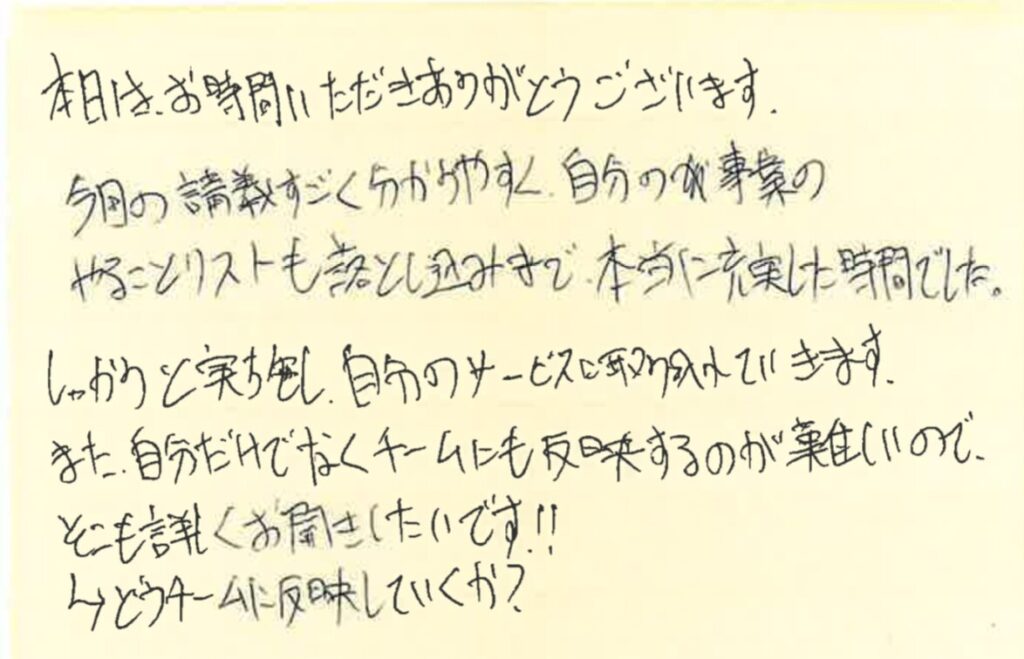 本日は、お時間いただきありがとうございます.
今回の講義すごく分かりやすく、自分の事業の
やることリストも落とし込みまで、本当に充実した時間でした。
しっかりと実施し、自分のサービスに取り入れていきます.
また、自分だけでなくチームにも反映するのが難しいので、
そこも詳しくお聞きしたいです!!
↳どうチームに反映していくか?